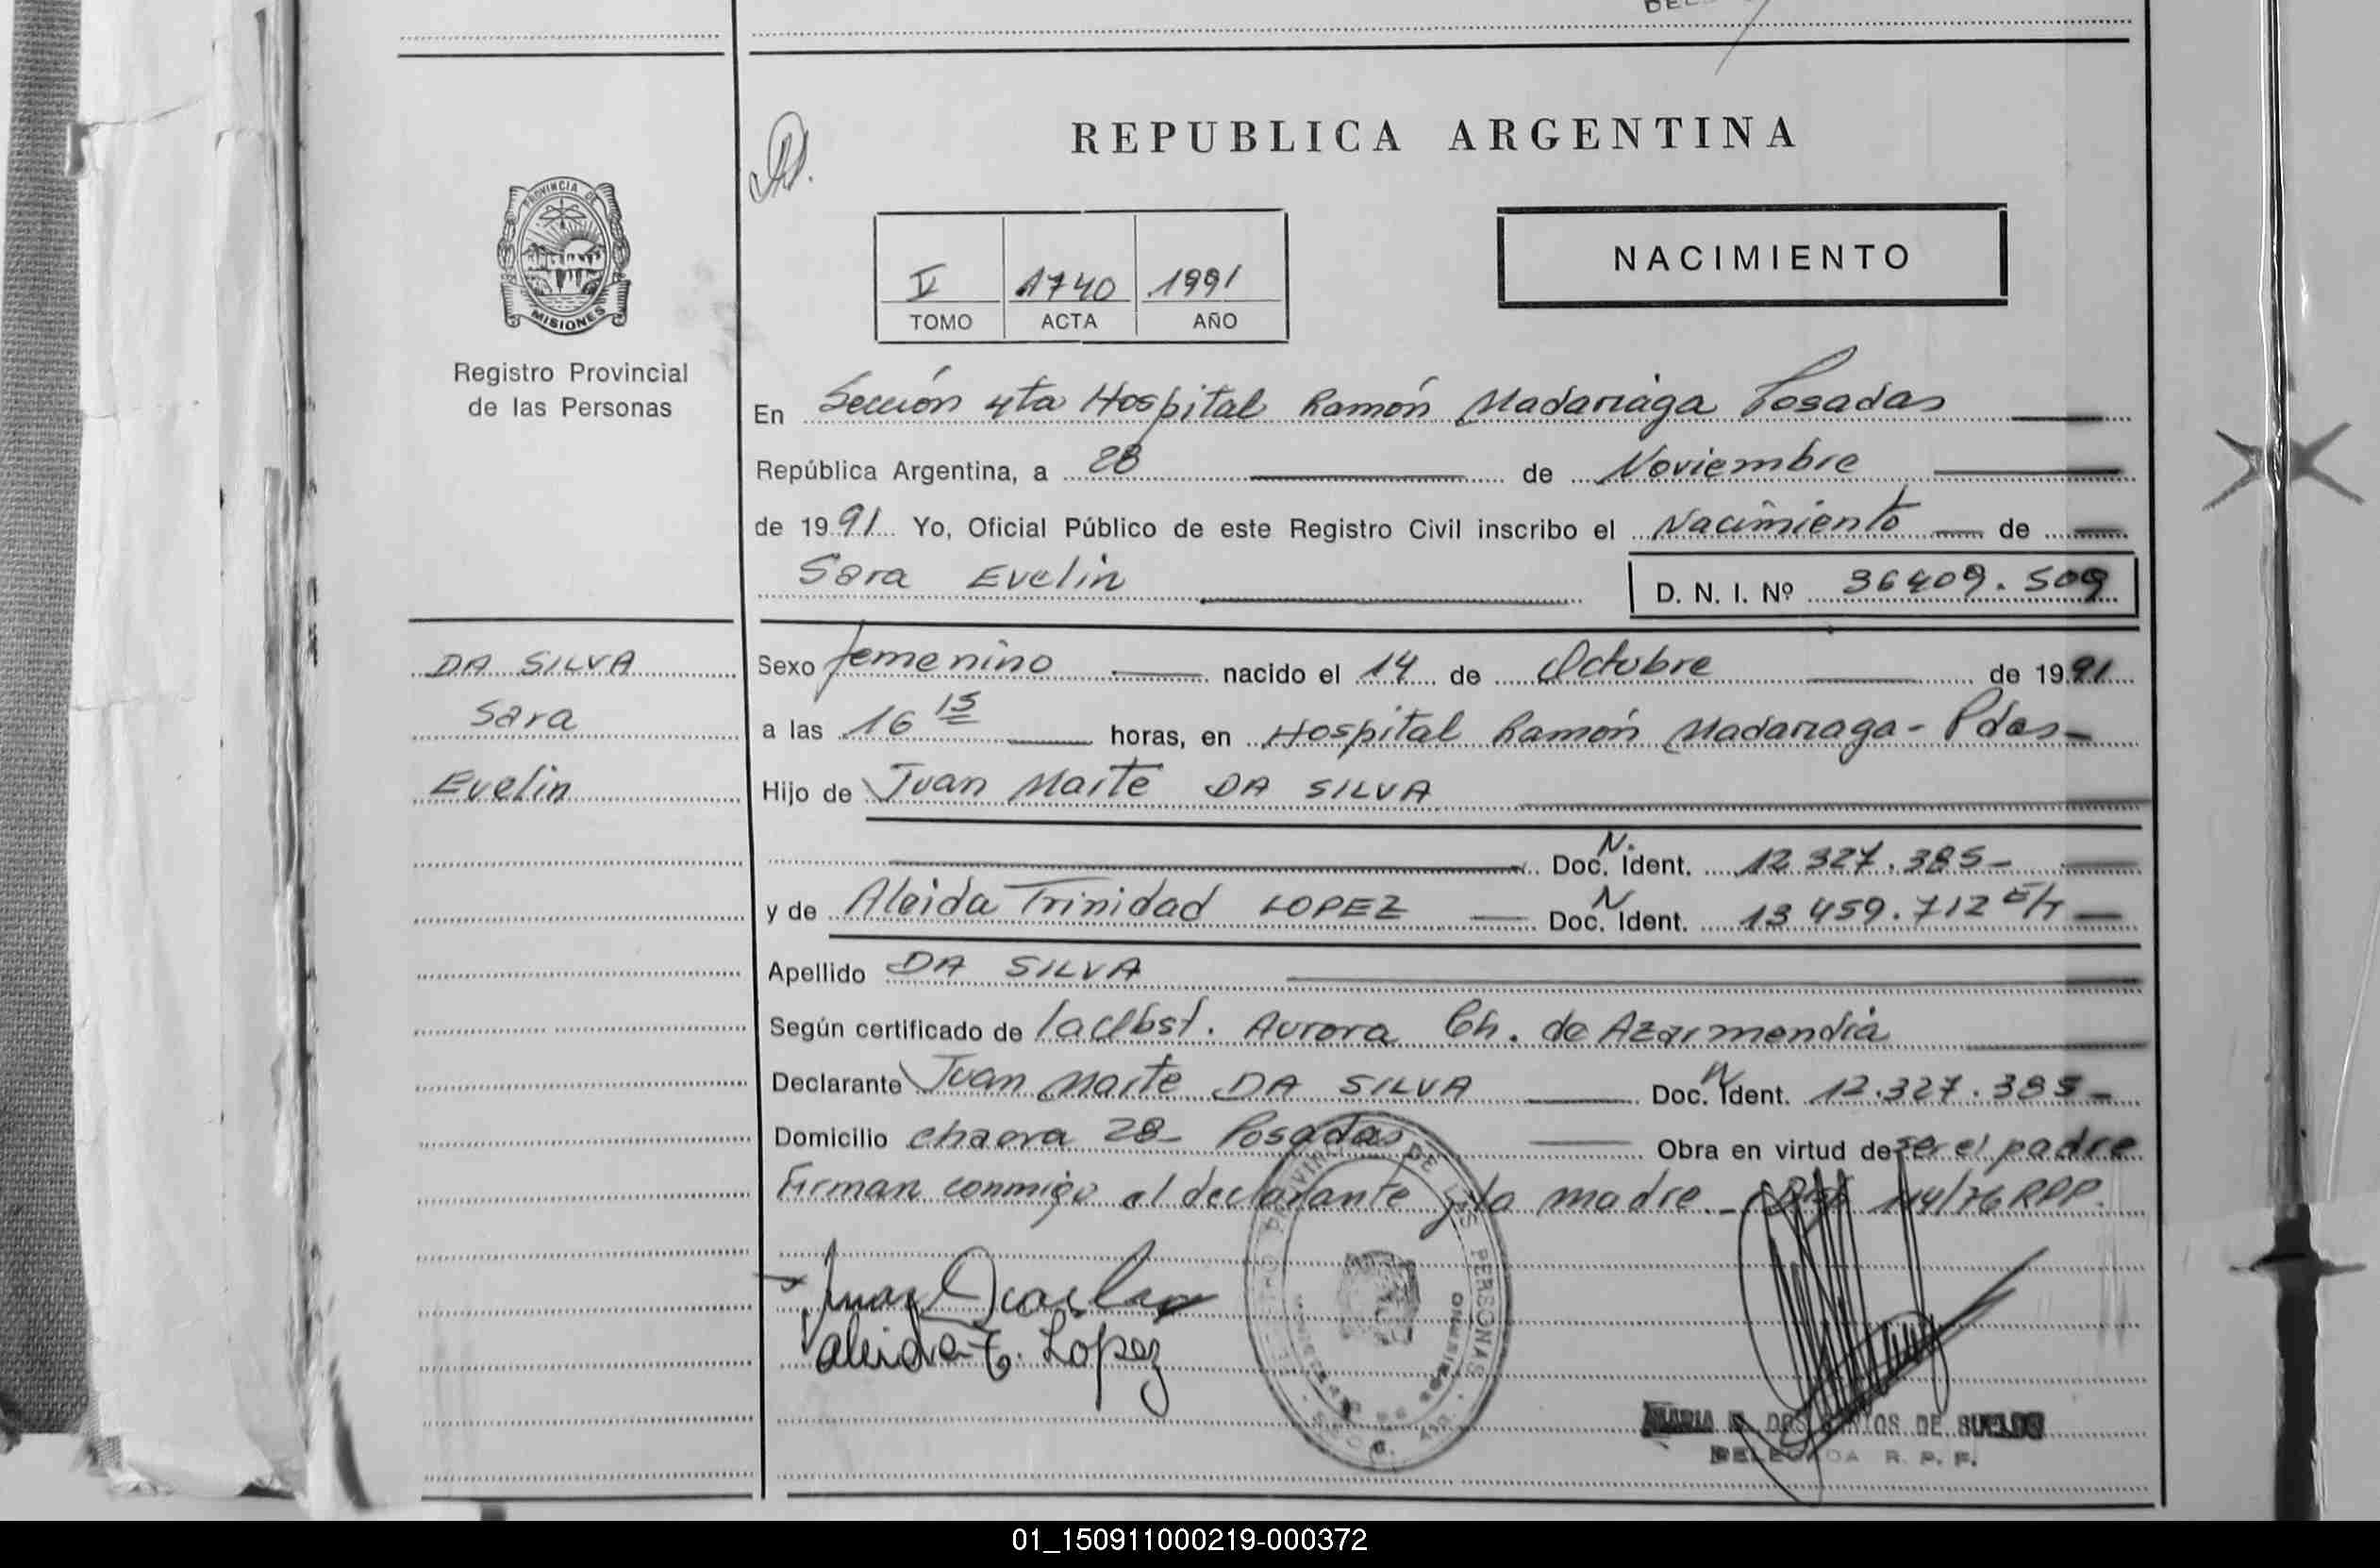 REPUBLICA ARGENTINA
NACIMIENTO
V 1740 1991
TOMO ACTA AÑO
PROVINCIA DE
MISIONES
Registro Provincial
de las Personas
En Sección 4ta Hospital Ramón Madariaga Posadas
República Argentina, a 28 de Noviembre
de 1991 Yo, Oficial Público de este Registro Civil inscribo el Nacimiento de
Sara Evelin D. N. I. Nº 36409.509
DA SILVA
Sara
Evelin
Sexo femenino nacido el 14 de Octubre de 1991
a las 16 15 horas, en Hospital Ramón Madariaga - Pdas-
Hijo de Juan Marte DA SILVA
N. Doc. Ident. 12.327.385-
y de Aleida Trinidad LOPEZ N Doc. Ident. 13.459.712 E/T
Apellido DA SILVA
Según certificado de la Obst. Aurora Ch. de Azarmendia
Declarante Juan Marte DA SILVA N Doc. Ident. 12.327.385-
Domicilio chacra 28- Posadas Obra en virtud de ser el padre
Firman conmigo el declarante y la madre. - Disp 114/76 RPP.
Aleida T. Lopez
DE LAS PERSONAS
MISIONES
MARIA DOS SANTOS DE
DELEGADA R. P. P.
01_150911000219-000372